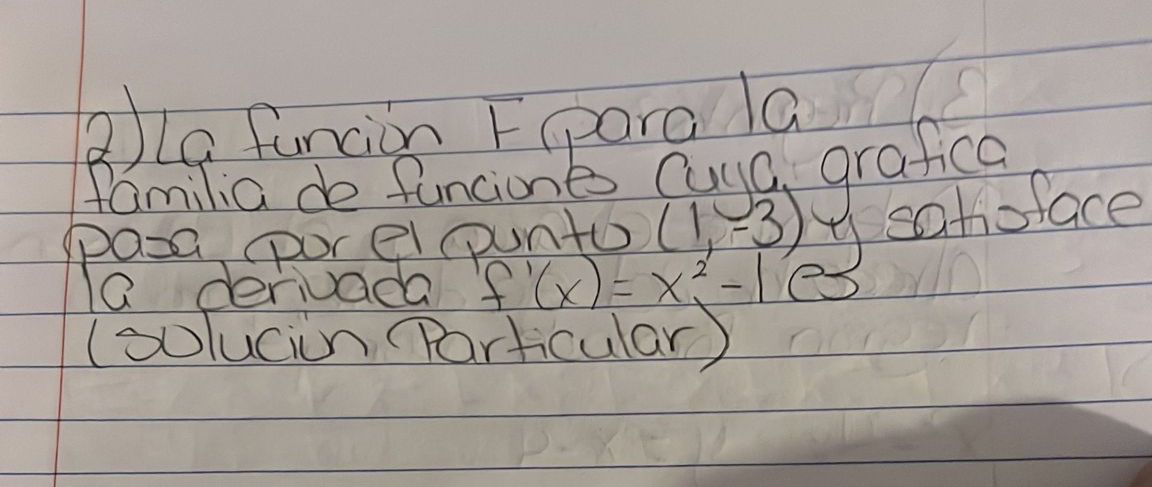 2) La función F para la
familia de funciones cuya grafica
pasa por el punto (1,-3) y satisface
la derivada f'(x) = x² - 1 es
(solución Particular)